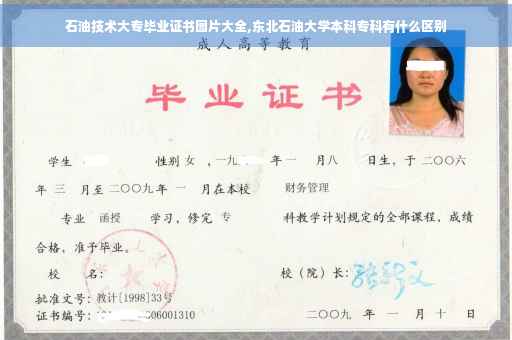 石油技术大专毕业证书图片大全,东北石油大学本科专科有什么区别
成人高等教育
毕业证书
学生 性别 女 ,一九 年 一 月 八 日生,于 二〇〇六
年 三 月至 二〇〇九 年 一 月在本校 财务管理
专业 函授 学习,修完 专 科教学计划规定的全部课程,成绩
合格,准予毕业。
校 名: 校(院)长:
批准文号:教计[1998]33号
证书编号: 06001310 二〇〇九 年 一 月 十 日